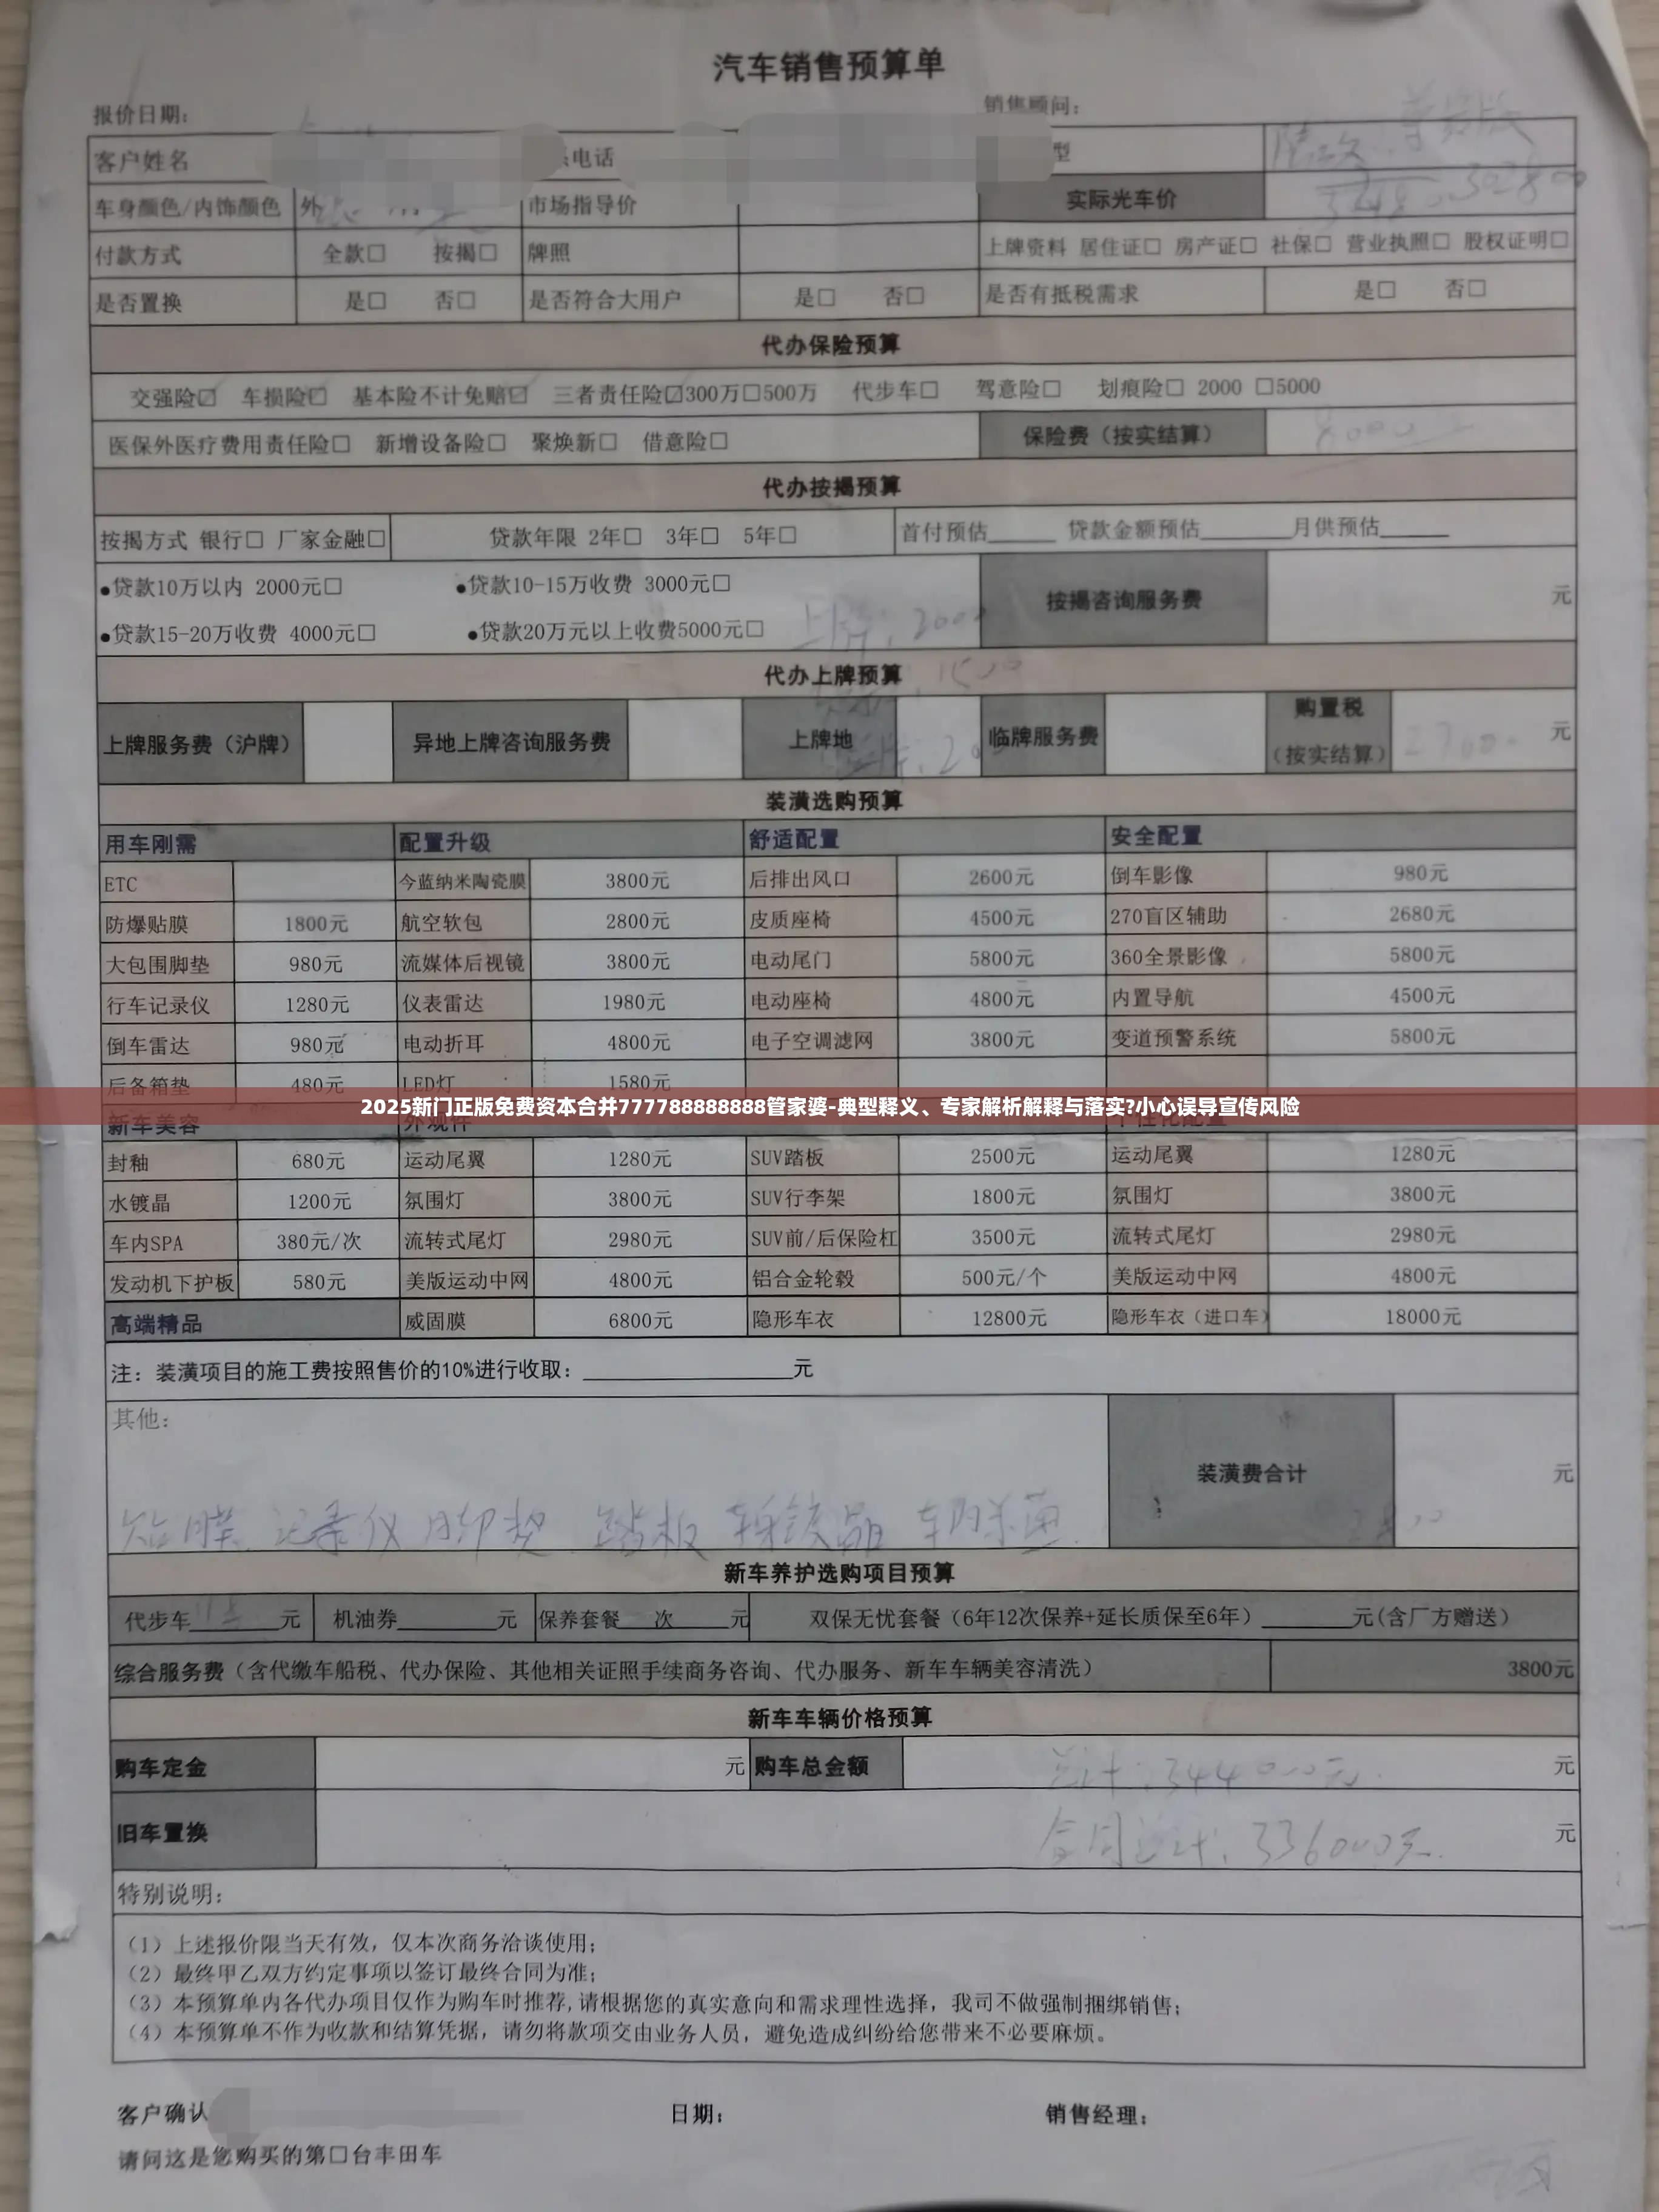 汽车销售预算单
报价日期： 销售顾问：
客户姓名 电话 型 尊贵版
车身颜色/内饰颜色 外 市场指导价 实际光车价 302800
付款方式 全款□ 按揭□ 牌照 上牌资料 居住证□ 房产证□ 社保□ 营业执照□ 股权证明□
是否置换 是□ 否□ 是否符合大用户 是□ 否□ 是否有抵税需求 是□ 否□
代办保险预算
交强险☑ 车损险☑ 基本险不计免赔☑ 三者责任险☑300万□500万 代步车□ 驾意险□ 划痕险□ 2000 □5000
医保外医疗费用责任险□ 新增设备险□ 聚焕新□ 借意险□ 保险费（按实结算） 8000
代办按揭预算
按揭方式 银行□ 厂家金融□ 贷款年限 2年□ 3年□ 5年□ 首付预估______ 贷款金额预估________月供预估______
●贷款10万以内 2000元□ ●贷款10-15万收费 3000元□ 按揭咨询服务费 元
●贷款15-20万收费 4000元□ ●贷款20万元以上收费5000元□ 上牌：2000
代办上牌预算 1500
上牌服务费（沪牌） 异地上牌咨询服务费 上牌地 临牌服务费 购置税（按实结算） 元
装潢选购预算
用车刚需 配置升级 舒适配置 安全配置
ETC 今蓝纳米陶瓷膜 3800元 后排出风口 2600元 倒车影像 980元
防爆贴膜 1800元 航空软包 2800元 皮质座椅 4500元 270盲区辅助 2680元
大包围脚垫 980元 流媒体后视镜 3800元 电动尾门 5800元 360全景影像 5800元
行车记录仪 1280元 仪表雷达 1980元 电动座椅 4800元 内置导航 4500元
倒车雷达 980元 电动折耳 4800元 电子空调滤网 3800元 变道预警系统 5800元
后备箱垫 480元 LED灯 1580元
2025新门正版免费资本合并777788888888管家婆-典型释义、专家解析解释与落实?小心误导宣传风险
新车美容 外观件 个性化配置
封釉 680元 运动尾翼 1280元 SUV踏板 2500元 运动尾翼 1280元
水镀晶 1200元 氛围灯 3800元 SUV行李架 1800元 氛围灯 3800元
车内SPA 380元/次 流转式尾灯 2980元 SUV前/后保险杠 3500元 流转式尾灯 2980元
发动机下护板 580元 美版运动中网 4800元 铝合金轮毂 500元/个 美版运动中网 4800元
高端精品 威固膜 6800元 隐形车衣 12800元 隐形车衣（进口车） 18000元
注：装潢项目的施工费按照售价的10%进行收取：__________________元
其他：
装潢费合计 元
贴膜 记录仪 脚垫 踏板 车身镀晶 车内杀菌
新车养护选购项目预算
代步车________元 机油券________元 保养套餐___次_____元 双保无忧套餐（6年12次保养+延长质保至6年）________元(含厂方赠送）
综合服务费（含代缴车船税、代办保险、其他相关证照手续商务咨询、代办服务、新车车辆美容清洗） 3800元
新车车辆价格预算
购车定金 元 购车总金额 总计：344000元. 元
旧车置换 合同总计：336000元. 元
特别说明：
（1）上述报价限当天有效，仅本次商务洽谈使用；
（2）最终甲乙双方约定事项以签订最终合同为准；
（3）本预算单内各代办项目仅作为购车时推荐,请根据您的真实意向和需求理性选择，我司不做强制捆绑销售；
（4）本预算单不作为收款和结算凭据，请勿将款项交由业务人员，避免造成纠纷给您带来不必要麻烦。
客户确认 日期： 销售经理：
请问这是您购买的第□台丰田车